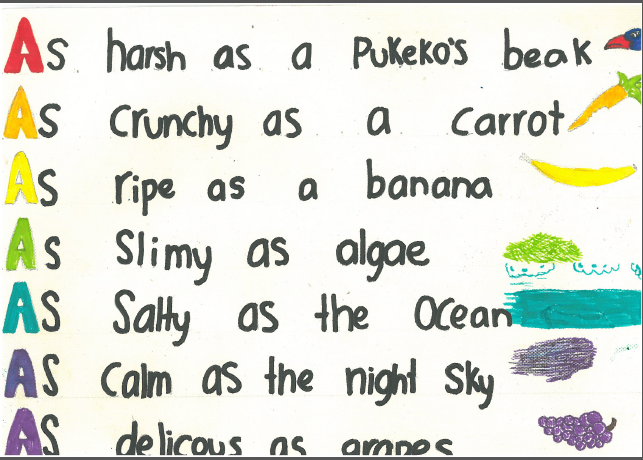 As harsh as a Pukeko's beak
As Crunchy as a Carrot
As ripe as a banana
As Slimy as algae
As Salty as the Ocean
As Calm as the night sky
As delicous as grapes